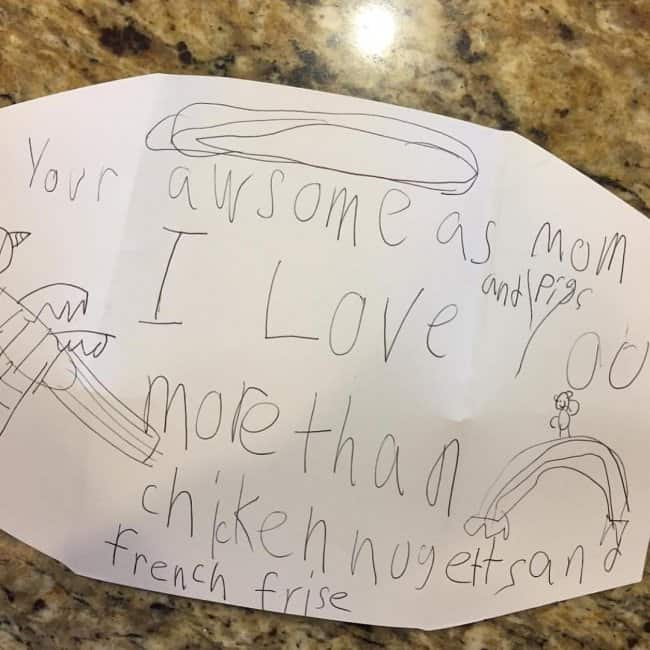 Your awsome as mom
and pigs
I Love You
more than
chickennugettsand
french frise